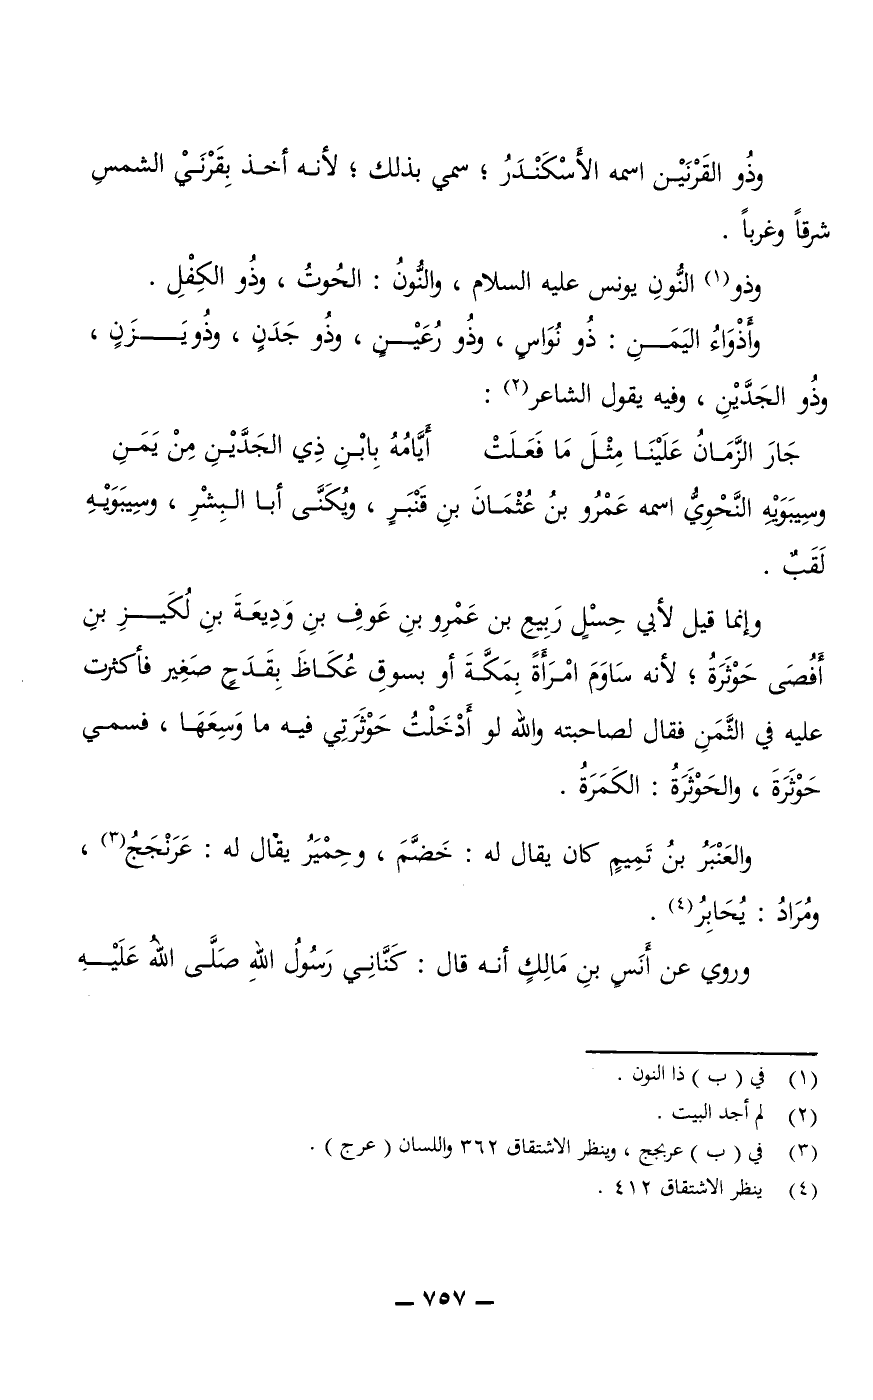 وذُو القَرْنَيْن اسمه الأَسْكَنْدَرُ ؛ سمي بذلك ؛ لأنه أخذ بِقَرْنَيْ الشمسِ
شرقاً وغرباً .
وذو(١) النُّونِ يونس عليه السلام ، والنُّونُ : الحُوتُ ، وذُو الكِفْلِ .
وأَذْوَاءُ اليَمَنِ : ذُو نُوَاسٍ ، وذُو رُعَيْنٍ ، وذُو جَدَنٍ ، وذُو يَزَنٍ ،
وذُو الجَدَّيْنِ ، وفيه يقول الشاعر(٢) :
جَارَ الزَّمَانُ عَلَيْنَا مِثْلَ مَا فَعَلَتْ أَيَّامُهُ بِابْنِ ذِي الجَدَّيْنِ مِنْ يَمَنِ
وسِيبَوَيْهِ النَّحْوِيُّ اسمه عَمْرُو بنُ عُثْمَانَ بنِ قَنْبَرٍ ، ويُكَنَّى أبا البِشْرِ ، وسِيبَوَيْهِ
لَقَبٌ .
وإنما قيل لأبي حِسْلٍ رَبِيعِ بن عَمْرِو بنِ عَوفِ بنِ وَدِيعَةَ بنِ لُكَيزِ بنِ
أَفْصَى حَوْثَرَةُ ؛ لأنه سَاوَمَ امْرَأَةً بِمَكَّةَ أو بسوقِ عُكَاظَ بِقَدَحٍ صَغِير فأكثرت
عليه في الثَّمَنِ فقال لصاحبته والله لو أَدْخَلْتُ حَوْثَرَتِي فيه ما وَسِعَهَا ، فسمي
حَوْثَرَةَ ، والحَوْثَرَةُ : الكَمَرَةُ .
والعَنْبَرُ بنُ تَمِيمٍ كان يقال له : خَضَّمَ ، وحِمْيَرُ يقال له : عَرَنْجَجُ(٣) ،
ومُرَادُ : يُحَابِرُ(٤) .
وروي عن أَنَسِ بنِ مَالِكٍ أنه قال : كَنَّانِي رَسُولُ اللهِ صَلَّى اللهُ عَلَيْهِ
(١) في ( ب ) ذا النون .
(٢) لم أجد البيت .
(٣) في ( ب ) عربجج ، وينظر الاشتقاق ٣٦٢ واللسان ( عرج ) .
(٤) ينظر الاشتقاق ٤١٢ .
— ٧٥٧ —